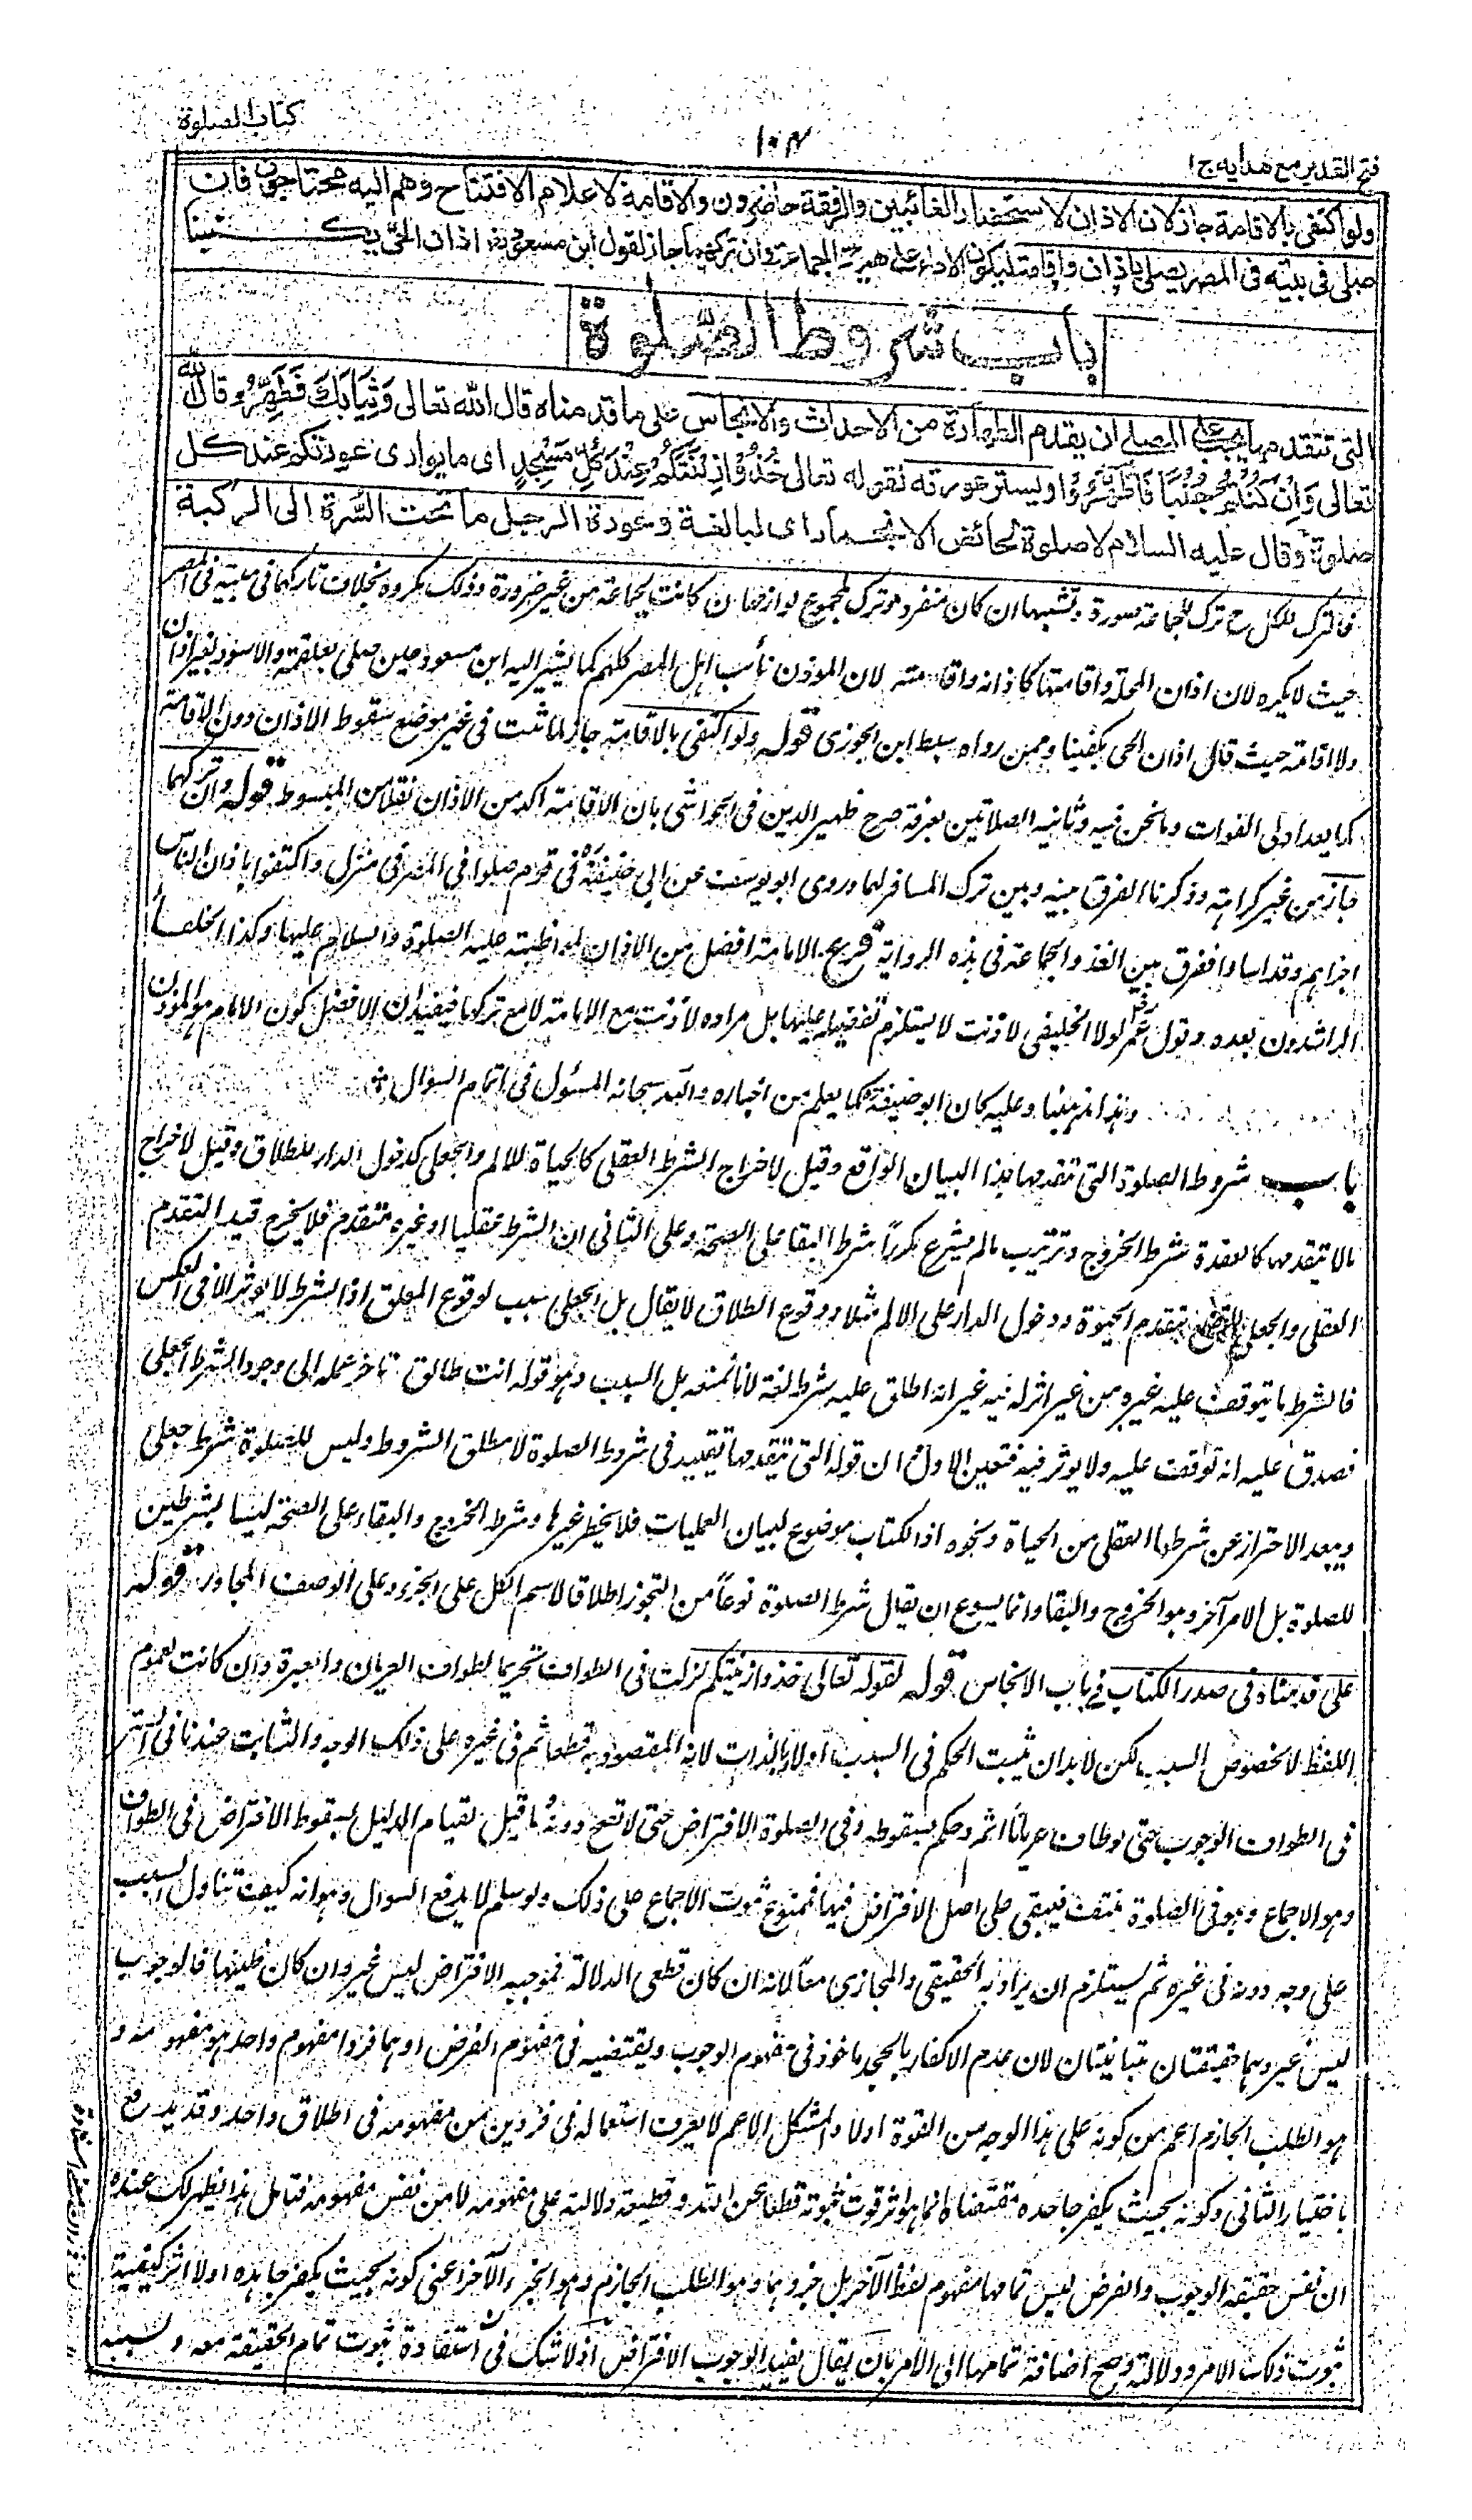 فتح القدير مع هدايه ج ١
١٠٣
كتاب الصلوة
ولو اكتفى بالاقامة جاز لان الاذان لاستحضار الغائبين والرفقة حاضرون والاقامة لاعلام الافتتاح وهم اليه محتاجون فان
صلى فى بيته فى المصر يصلى باذان واقامة ليكون الاداء على هيئة الجماعة وان تركهما جاز لقول ابن مسعود رض اذان الحى يكفينا
باب شروط الصلوة
التى تتقدمها يجب على المصلى ان يقدم الطهارة من الاحداث والانجاس على ما قدمناه قال الله تعالى وَثِيَابَكَ فَطَهِّرْ وقال الله
تعالى وَاِنْ كُنْتُمْ جُنُبًا فَاطَّهَّرُوْا ويستر عورته لقوله تعالى خُذُوْا زِيْنَتَكُمْ عِنْدَ كُلِّ مَسْجِدٍ اى ما يوارى عورتكم عند كل
صلوة وقال عليه السلام لا صلوة لحائض الا بخمار اى لبالغة وعورة الرجل ما تحت السرة الى الركبة
فالترك للكل ح ترك للجماعة صورة وتشبها ان كان منفردا وترك لمجموع لوازمها ان كانت بجماعة من غير ضرورة وذلك مكروه بخلاف تاركهما فى بيته فى المصر
حيث لا يكره لان اذان المحلة واقامتها كاذانه واقامته لان المؤذن نائب اهل المصر كلهم كما يشير اليه ابن مسعود حين صلى بعلقمة والاسود بغير اذان
ولا اقامة حيث قال اذان الحى يكفينا وممن رواه سبط ابن الجوزى قوله ولو اكتفى بالاقامة جاز لما ثبت فى غير موضع سقوط الاذان دون الاقامة
كما بعد اولى الفوائت وما نحن فيه وثانية الصلاتين بعرفة صرح ظهير الدين فى الحواشى بان الاقامة اكد من الاذان نقلا من المبسوط قوله وان تركهما
جاز من غير كراهة وذكرنا الفرق بينه وبين ترك المسافر لهما وروى ابو يوسف عن ابى حنيفة فى قوم صلوا فى المصر فى منزل واكتفوا باذان الناس
اجزاهم وقد اساءوا ففرق بين الفذ والجماعة فى هذه الرواية فرع الامامة افضل من الاذان لمواظبته عليه الصلوة والسلام عليها وكذا الخلفاء
الراشدون بعده وقول عمر رض لولا الخليفى لاذنت لا يستلزم تفضيله عليها بل مراده لاذنت مع الامامة لا مع تركها فيفيد ان الافضل كون الامام هو المؤذن
وهذا مذهبنا وعليه كان ابو حنيفة كما يعلم من اخباره والله سبحانه المسئول فى اتمام السؤال
باب شروط الصلوة التى تتقدمها هذا البيان الواقع وقيل لاخراج الشرط العقلى كالحياة للالم والجعلى كدخول الدار للطلاق وقيل لاخراج
ما لا يتقدمها كالقعدة شرط الخروج وترتيب ما لم يشرع مكررا شرط البقاء على الصحة وعلى الثانى ان الشرط عقليا او غيره متقدم فلا يخرج قيد التقدم
العقلى والجعلى للقطع بتقدم الحيوة ودخول الدار على الالم مثلا ووقوع الطلاق لا يقال بل الجعلى سبب لوقوع المعلق اذ الشرط لا يؤثر الا فى العكس
فالشرط ما يتوقف عليه غيره من غير اثر له فيه غير انه اطلق عليه شرط لغة لانا نمنعه بل السبب وهو قوله انت طالق تاخر عمله الى وجود الشرط الجعلى
فصدق عليه انه توقف عليه ولا يؤثر فيه فتعين الاول ان قوله التى تتقدمها تقييد فى شروط الصلوة لا مطلق الشروط وليس للصلوة شرط جعلى
ويبعد الاحتراز عن شرطها العقلى من الحياة ونحوه اذ الكتاب موضوع لبيان العمليات فلا يخطر غيرها وشرط الخروج والبقاء على الصحة ليسا بشرطين
للصلوة بل لامر آخر وهو الخروج والبقاء وانما يسوغ ان يقال شرط الصلوة نوعا من التجوز اطلاقا لاسم الكل على الجزء وعلى الوصف المجاور قوله
على ما قدمناه فى صدر الكتاب فى باب الانجاس قوله لقوله تعالى خذوا زينتكم نزلت فى الطواف تحريما لطواف العريان والعبرة وان كانت لعموم
اللفظ لا لخصوص السبب لكن لا بد ان يثبت الحكم فى السبب اولا وبالذات لانه المقصود به قطعا ثم فى غيره على ذلك الوجه والثابت عندنا فى الستر
فى الطواف الوجوب حتى لو طاف عريانا اثم وحكم بسقوطه وفى الصلوة الافتراض حتى لا تصح دونه وما قيل لقيام الدليل بسقوط الافتراض فى الطواف
وهو الاجماع وهو فى الصلوة منتف فيبقى على اصل الافتراض فيها فممنوع ثبوت الاجماع على ذلك ولو سلم لا يدفع السؤال وهو انه كيف تناول السبب
على وجه دونه فى غيره ثم يستلزم ان يراد به الحقيقى والمجازى معا لانه ان كان قطعى الدلالة فموجبه الافتراض ليس غير وان كان ظنيها فالوجوب
ليس غير وهما حقيقتان متباينتان لان عدم الاكفار بالجحد ماخوذ فى مفهوم الوجوب ونقيضه فى مفهوم الفرض او هما فردا مفهوم واحد هو مفهومه و
هو الطلب الجازم اعم من كونه على هذا الوجه من القوة اولا والمشكل الاعم لا يعرف استعماله فى فردين من مفهومه فى اطلاق واحد وقد يدفع
باختيار الثانى وكونه بحيث يكفر جاحده مقتضاه انما هو اثر قوت ثبوته قطعا عن الله وقطعية دلالته على مفهومه لا من نفس مفهومه فتامل هذا يظهر لك عنده
ان نفس حقيقة الوجوب والفرض ليس تمامها مفهوم لفظ الآخر بل جزءهما وهو الطلب الجازم وهو الجزء الآخر اعنى كونه بحيث يكفر جاحده اولا اثر كيفية
ثبوت ذلك الامر ودلالته وصح اضافة تمامها الى الامر بان يقال يفيد الوجوب الافتراض اذ لا شك فى استفادة ثبوت تمام الحقيقة معه وبسببه